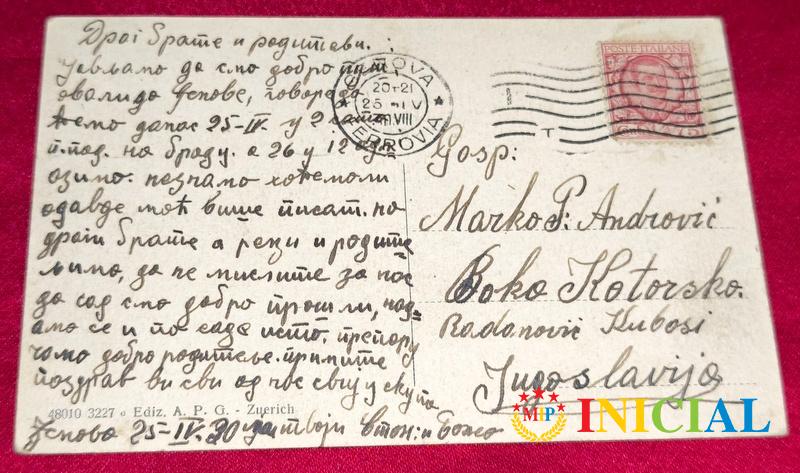 Драги брате и родитељи.
Јављамо да смо добро пут
овали до Ђенове, говоре да
ћемо данас 25-IV. у 2 сата
п. под. на брод у. а 26 у 12
одавде моћ више писат. но
драги брате а реци и родите
љима, да не мислите за нас
да сад смо добро прошли, над-
амо се и по саде исто. препору
чамо добро родитеље. примите
поздрав ви сви од нас свију скупа
Ђенова 25-IV. 30 твоји и Божо
48010 3227 Ediz. A. P. G. - Zuerich
GENOVA
20-21
25 IV
VIII
FERROVIA
POSTE ITALIANE
75
T
Gosp:
Marko P. Andrović
Boko Kotorsko.
Radanović Kubosi
Jugoslavija
MIP INICIAL